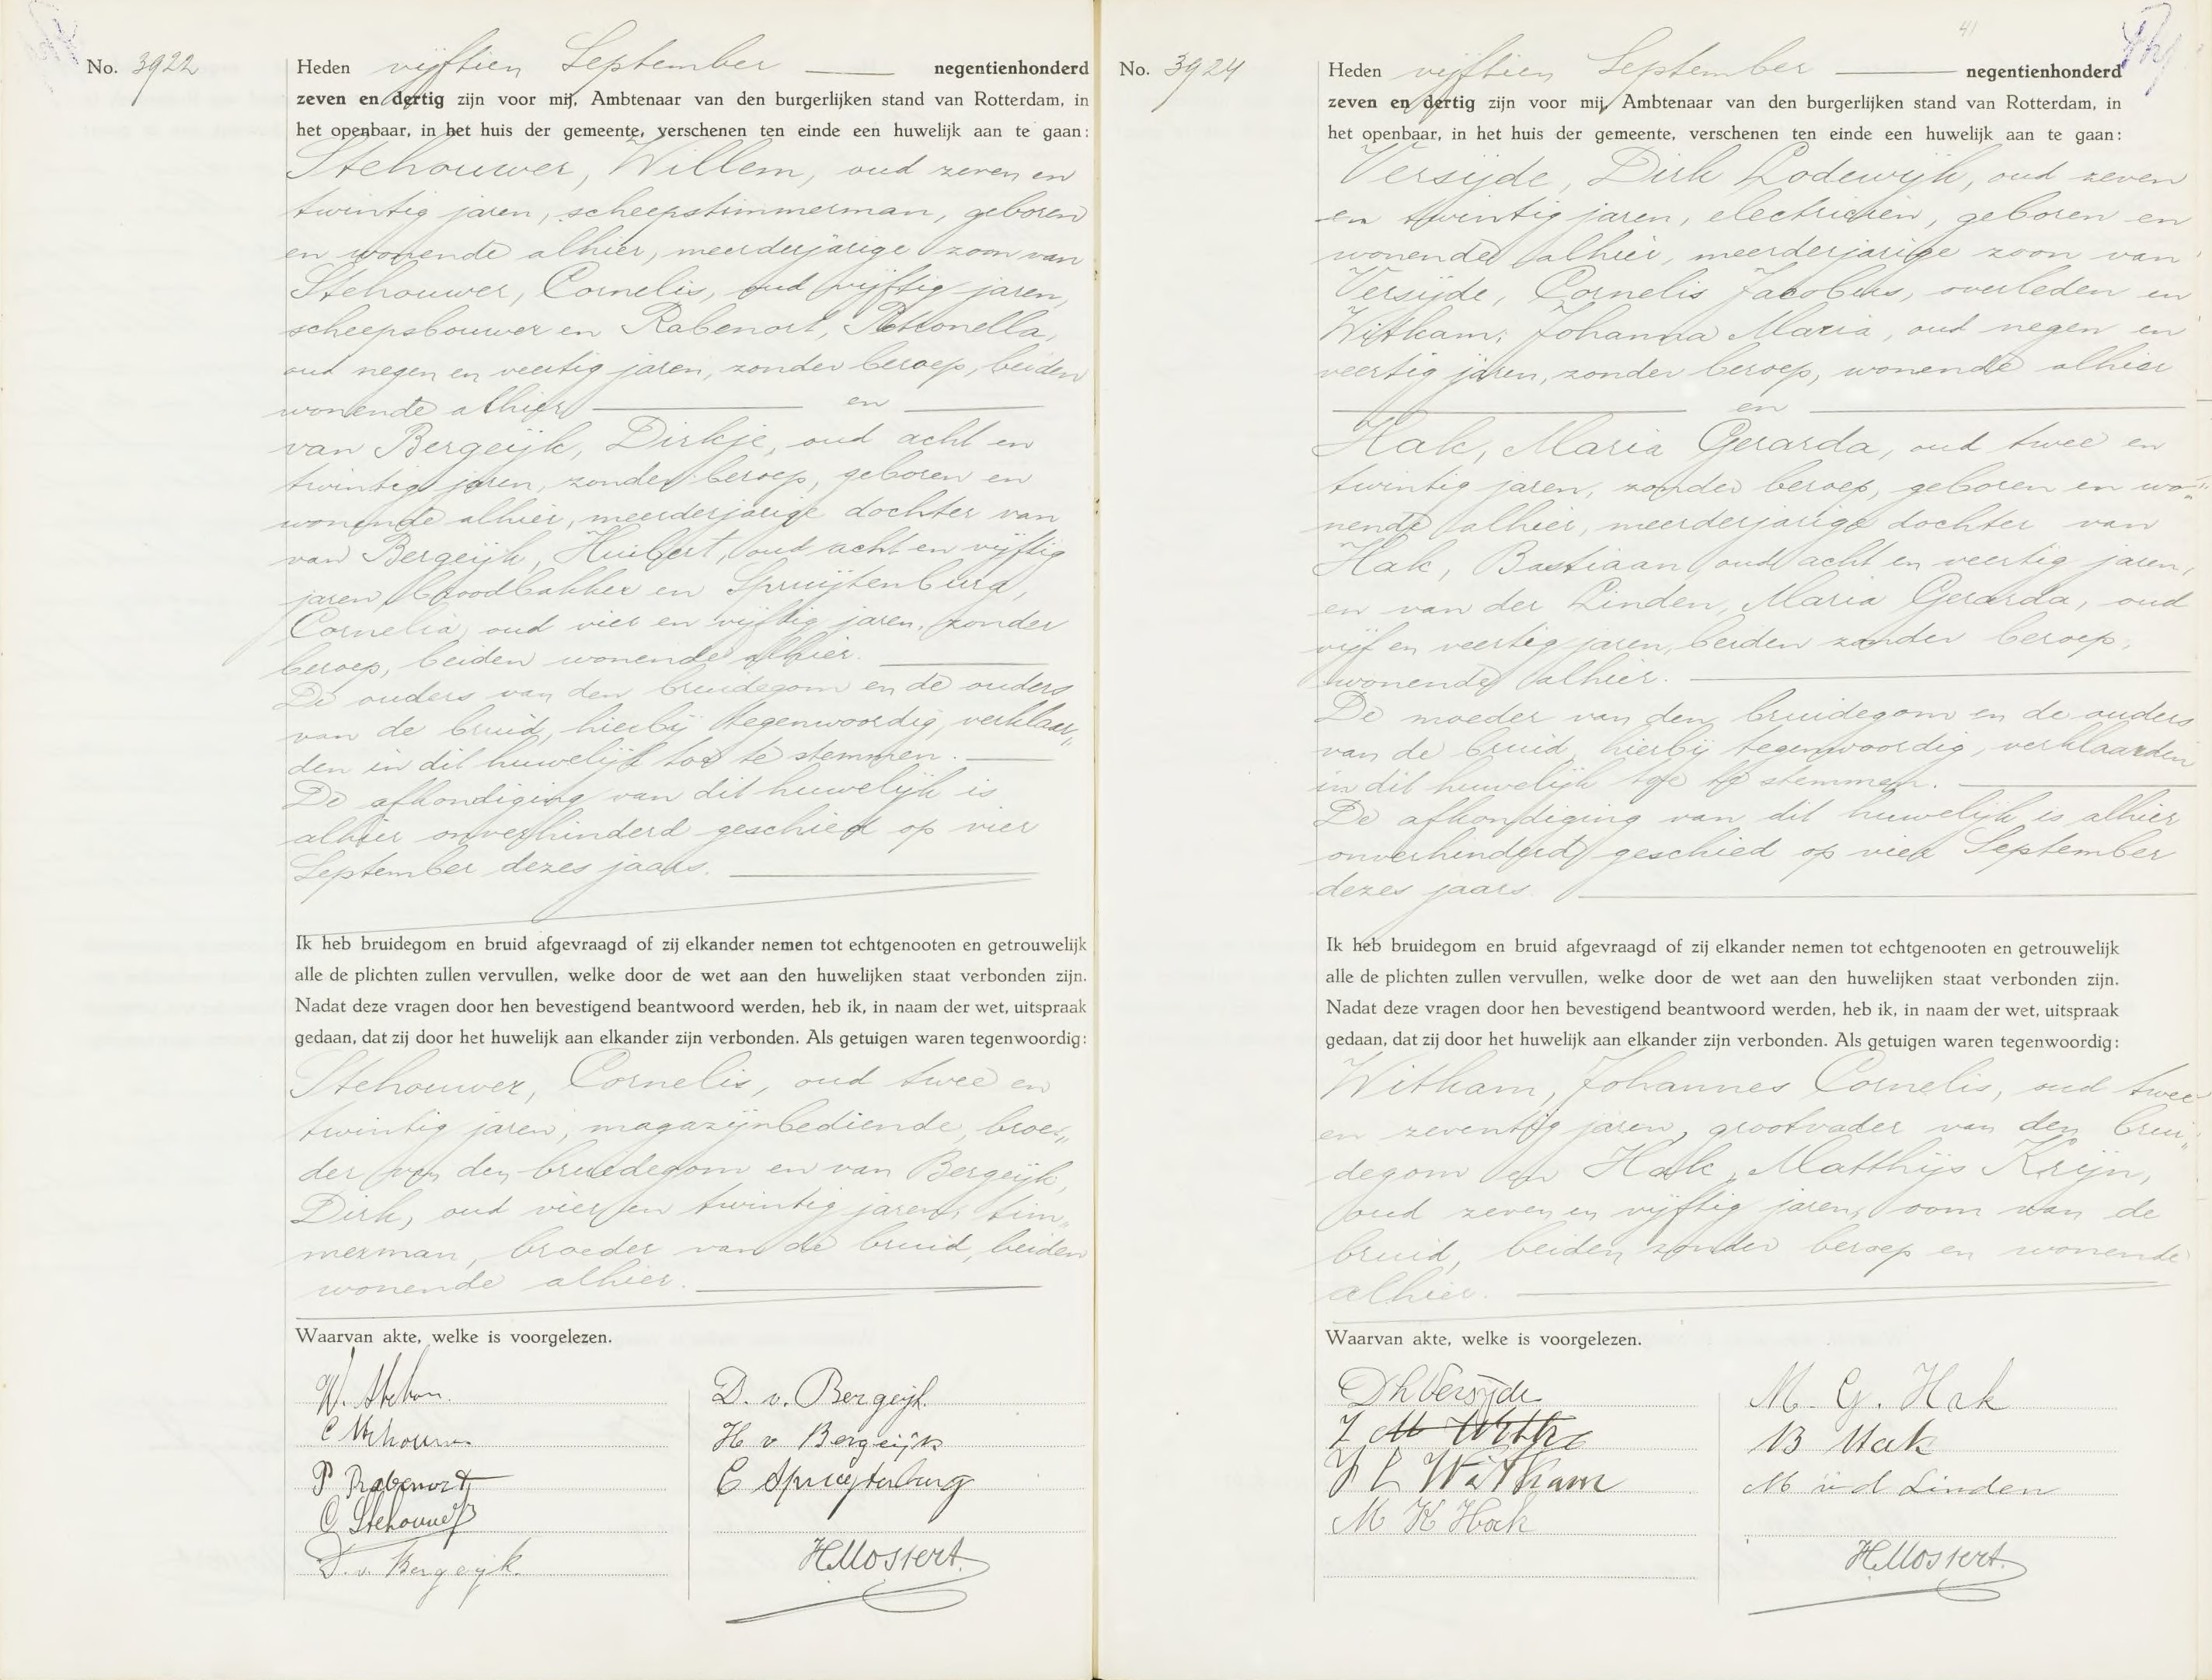 No. 3922
Heden vijftien September negentienhonderd
zeven en dertig zijn voor mij, Ambtenaar van den burgerlijken stand van Rotterdam, in
het openbaar, in het huis der gemeente, verschenen ten einde een huwelijk aan te gaan:
Stehouwer, Willem, oud zeven en
twintig jaren, scheepstimmerman, geboren
en wonende alhier, meerderjarige zoon van
Stehouwer, Cornelis, oud vijftig jaren,
scheepsbouwer en Rabenort, Petronella,
oud negen en veertig jaren, zonder beroep, beiden
wonende alhier en
van Bergeijk, Dirkje, oud acht en
twintig jaren, zonder beroep, geboren en
wonende alhier, meerderjarige dochter van
van Bergeijk, Huibert, oud acht en vijftig
jaren, broodbakker en Spruijtenburg,
Cornelia, oud vier en vijftig jaren, zonder
beroep, beiden wonende alhier.
De ouders van den bruidegom en de ouders
van de bruid, hierbij tegenwoordig, verklaar„
den in dit huwelijk toe te stemmen.
De afkondiging van dit huwelijk is
alhier onverhinderd geschied op vier
September dezes jaars.
Ik heb bruidegom en bruid afgevraagd of zij elkander nemen tot echtgenooten en getrouwelijk
alle de plichten zullen vervullen, welke door de wet aan den huwelijken staat verbonden zijn.
Nadat deze vragen door hen bevestigend beantwoord werden, heb ik, in naam der wet, uitspraak
gedaan, dat zij door het huwelijk aan elkander zijn verbonden. Als getuigen waren tegenwoordig:
Stehouwer, Cornelis, oud twee en
twintig jaren, magazijnbediende, broe„
der van den bruidegom en van Bergeijk,
Dirk, oud vier en twintig jaren, tim„
merman, broeder van de bruid, beiden
wonende alhier.
Waarvan akte, welke is voorgelezen.
W. Stehou
C Stehouwer
P Rabenort
C Stehouwer
D. v. Bergeijk.
D. v. Bergeijk.
H v Bergeijk
C Spruijtenburg
H. Mostert.
41
No. 3924
Heden vijftien September negentienhonderd
zeven en dertig zijn voor mij, Ambtenaar van den burgerlijken stand van Rotterdam, in
het openbaar, in het huis der gemeente, verschenen ten einde een huwelijk aan te gaan:
Versijde, Dirk Lodewijk, oud zeven
en twintig jaren, electricien, geboren en
wonende alhier, meerderjarige zoon van
Versijde, Cornelis Jacobus, overleden en
Witkam, Johanna Maria, oud negen en
veertig jaren, zonder beroep, wonende alhier
en
Hak, Maria Gerarda, oud twee en
twintig jaren, zonder beroep, geboren en wo„
nende alhier, meerderjarige dochter van
Hak, Bastiaan oud acht en veertig jaren,
en van der Linden, Maria Gerarda, oud
vijf en veertig jaren, beiden zonder beroep,
wonende alhier.
De moeder van den bruidegom en de ouders
van de bruid, hierbij tegenwoordig, verklaarden
in dit huwelijk toe te stemmen.
De afkondiging van dit huwelijk is alhier
onverhinderd geschied op vier September
dezes jaars.
Ik heb bruidegom en bruid afgevraagd of zij elkander nemen tot echtgenooten en getrouwelijk
alle de plichten zullen vervullen, welke door de wet aan den huwelijken staat verbonden zijn.
Nadat deze vragen door hen bevestigend beantwoord werden, heb ik, in naam der wet, uitspraak
gedaan, dat zij door het huwelijk aan elkander zijn verbonden. Als getuigen waren tegenwoordig:
Witkam, Johannes Cornelis, oud twee
en zeventig jaren, grootvader van den brui„
degom en Hak, Matthijs Krijn,
oud zeven en vijftig jaren, oom van de
bruid, beiden zonder beroep en wonende
alhier.
Waarvan akte, welke is voorgelezen.
D L Versijde
J M
J C Witkam
M K Hak
M. G. Hak
B Hak
M v d Linden
H. Mostert.